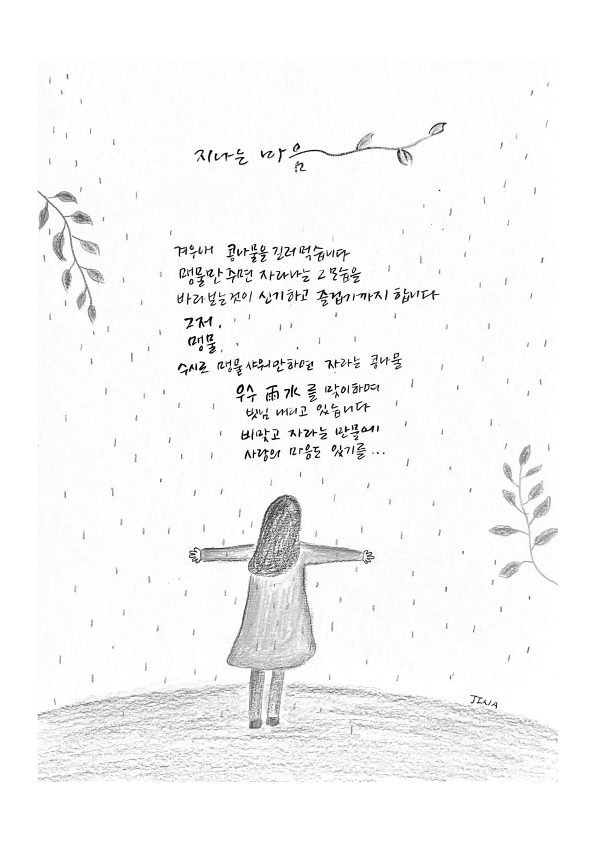 지나는 마음
겨우내 콩나물을 길러 먹습니다
맹물만 주면 자라나는 그 모습을
바라보는것이 신기하고 즐겁기까지 합니다
그저,
맹물,
수시로 맹물 샤워만하면 자라는 콩나물
우수 雨水 를 맞이하며
빗님 내리고 있습니다
비맞고 자라는 만물에
사람의 마음도 있기를...
JINA